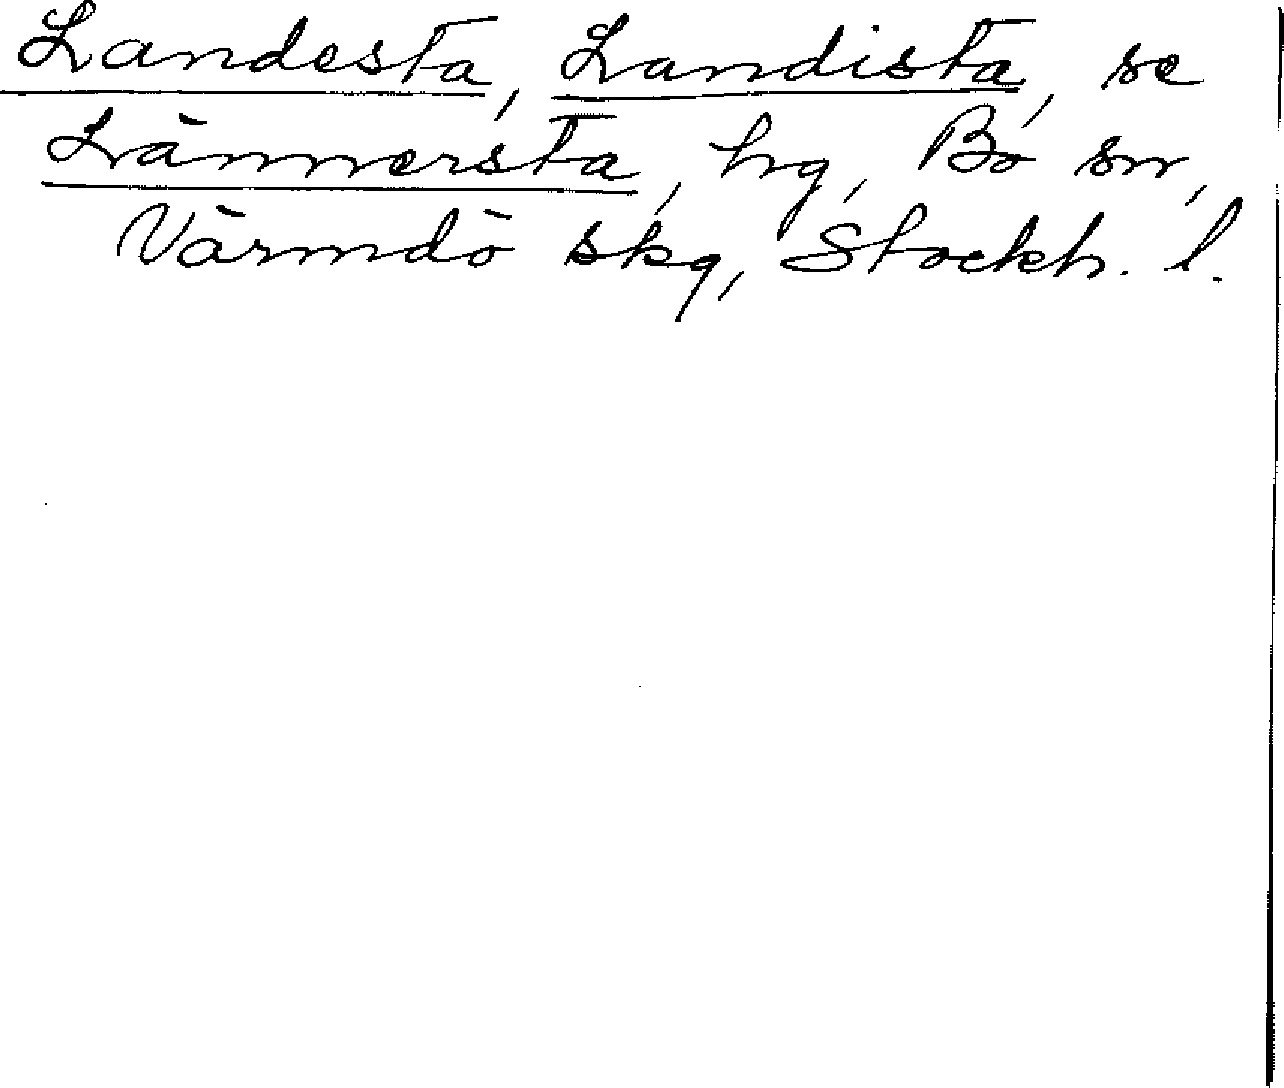 Landesta, Landista, se
Lännersta, hg, Bo sn,
Värmdö skg, Stockh. l.